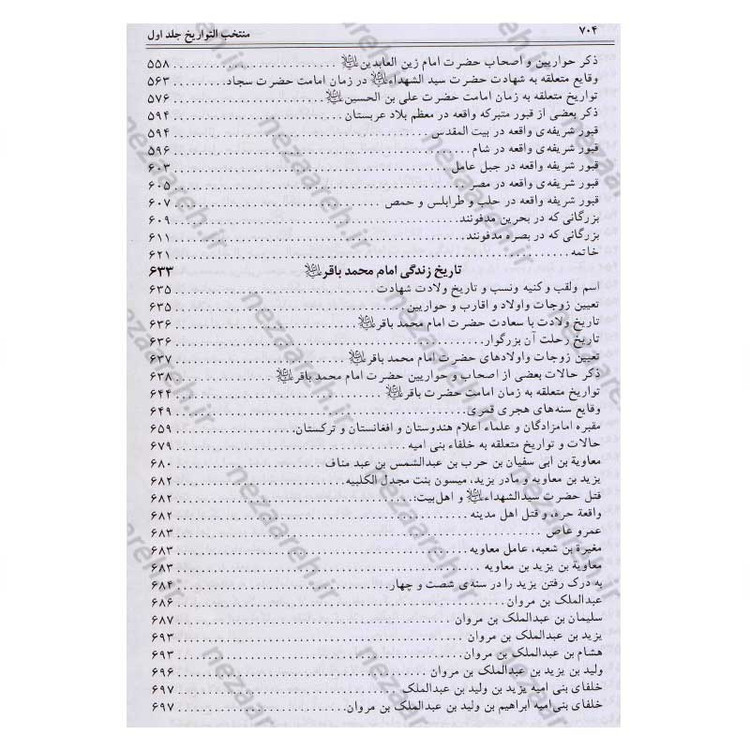 ۷۰۴ منتخب التواریخ جلد اول
ذکر حواریین و اصحاب حضرت امام زین العابدین ۵۵۸
وقایع متعلقه به شهادت حضرت سید الشهداء در زمان امامت حضرت سجاد ۵۶۳
تواریخ متعلقه به زمان امامت حضرت علی بن الحسین ۵۷۶
ذکر بعضی از قبور متبرکه واقعه در معظم بلاد عربستان ۵۹۴
قبور شریفه‌ی واقعه در بیت المقدس ۵۹۴
قبور شریفه‌ی واقعه در شام ۵۹۶
قبور شریفه واقعه در جبل عامل ۶۰۳
قبور شریفه‌ی واقعه در مصر ۶۰۵
قبور شریفه واقعه در حلب و طرابلس و حمص ۶۰۷
بزرگانی که در بحرین مدفونند ۶۰۹
بزرگانی که در بصره مدفونند ۶۱۱
خاتمه ۶۲۱
تاریخ زندگی امام محمد باقر ۶۳۳
اسم ولقب و کنیه ونسب و تاریخ ولادت شهادت ۶۳۵
تعیین زوجات واولاد و اقارب و حواریین ۶۳۵
تاریخ ولادت با سعادت حضرت امام محمد باقر ۶۳۶
تاریخ رحلت آن بزرگوار ۶۳۶
تعیین زوجات واولادهای حضرت امام محمد باقر ۶۳۷
ذکر حالات بعضی از اصحاب و حواریین حضرت امام محمد باقر ۶۳۸
تواریخ متعلقه به زمان امامت حضرت باقر ۶۴۴
وقایع سنه‌های هجری قمری ۶۴۹
مقبره امامزادگان و علماء اعلام هندوستان و افغانستان و ترکستان. ۶۵۹
حالات و تواریخ متعلقه به خلفاء بنی امیه ۶۷۹
معاویة بن ابی سفیان بن حرب بن عبدالشمس بن عبد مناف ۶۸۰
یزید بن معاویه و مادر یزید، میسون بنت مجدل الکلبیه ۶۸۲
قتل حضرت سیدالشهداء و اهل‌بیت: ۶۸۲
واقعة حره، و قتل اهل مدینه ۶۸۲
عمرو عاص ۶۸۳
مغیرة بن شعبه، عامل معاویه ۶۸۳
معاویة بن یزید بن معاویه ۶۸۳
به درک رفتن یزید را در سنه‌ی شصت و چهار ۶۸۴
عبدالملک بن مروان ۶۸۶
سلیمان بن عبدالملک بن مروان ۶۸۷
یزید بن عبدالملک بن مروان ۶۹۳
هشام بن عبدالملک بن مروان ۶۹۳
ولید بن یزید بن عبدالملک بن مروان ۶۹۶
خلفای بنی امیه یزید بن ولید بن عبدالملک ۶۹۷
خلفای بنی‌امیه ابراهیم بن ولید بن عبدالملک بن مروان ۶۹۷
nezaareh.ir